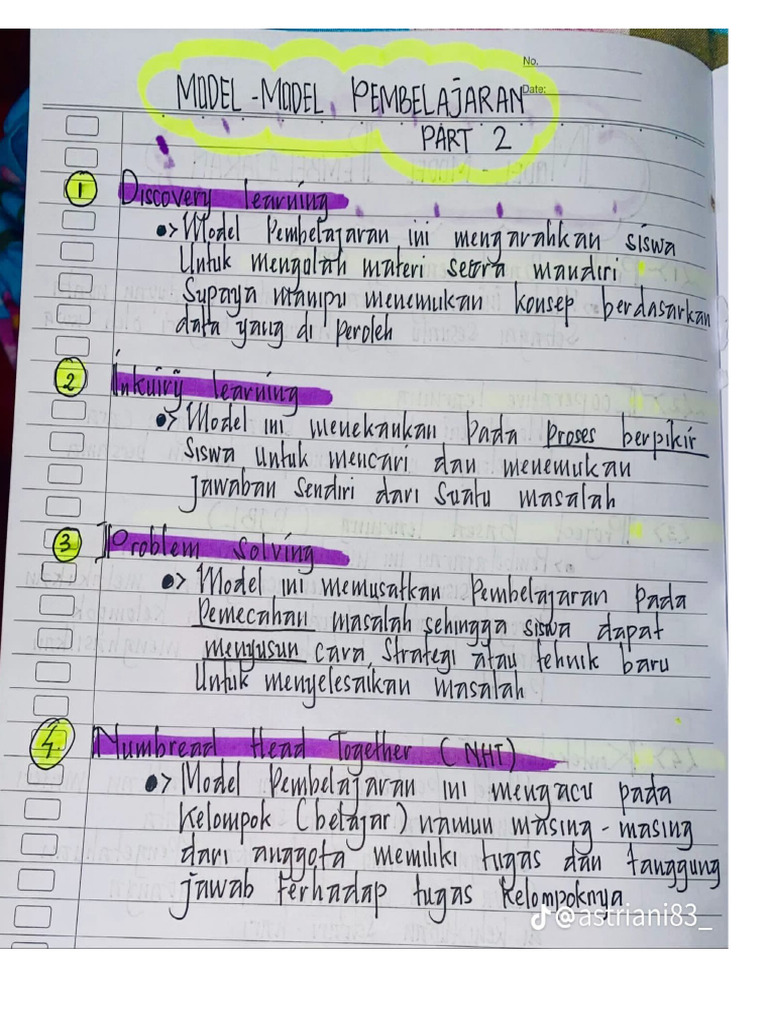 No.
Date:
MODEL - MODEL PEMBELAJARAN
PART 2
1 Discovery learning
Model Pembelajaran ini mengarahkan siswa
Untuk mengolah materi secara mandiri
Supaya mampu menemukan konsep berdasarkan
data yang di peroleh
2 Inkuiry learning
Model ini menekankan pada proses berpikir
Siswa untuk mencari dan menemukan
Jawaban Sendiri dari Suatu masalah
3 Problem Solving
Model ini memusatkan Pembelajaran pada
Pemecahan masalah sehingga siswa dapat
menyusun cara, Strategi atau tehnik baru
Untuk menyelesaikan masalah
4 Numbread Head Together (NHT)
Model Pembelajaran ini mengacu pada
Kelompok (belajar) namun masing - masing
dari anggota memiliki tugas dan tanggung
jawab terhadap tugas Kelompoknya
@astriani83_